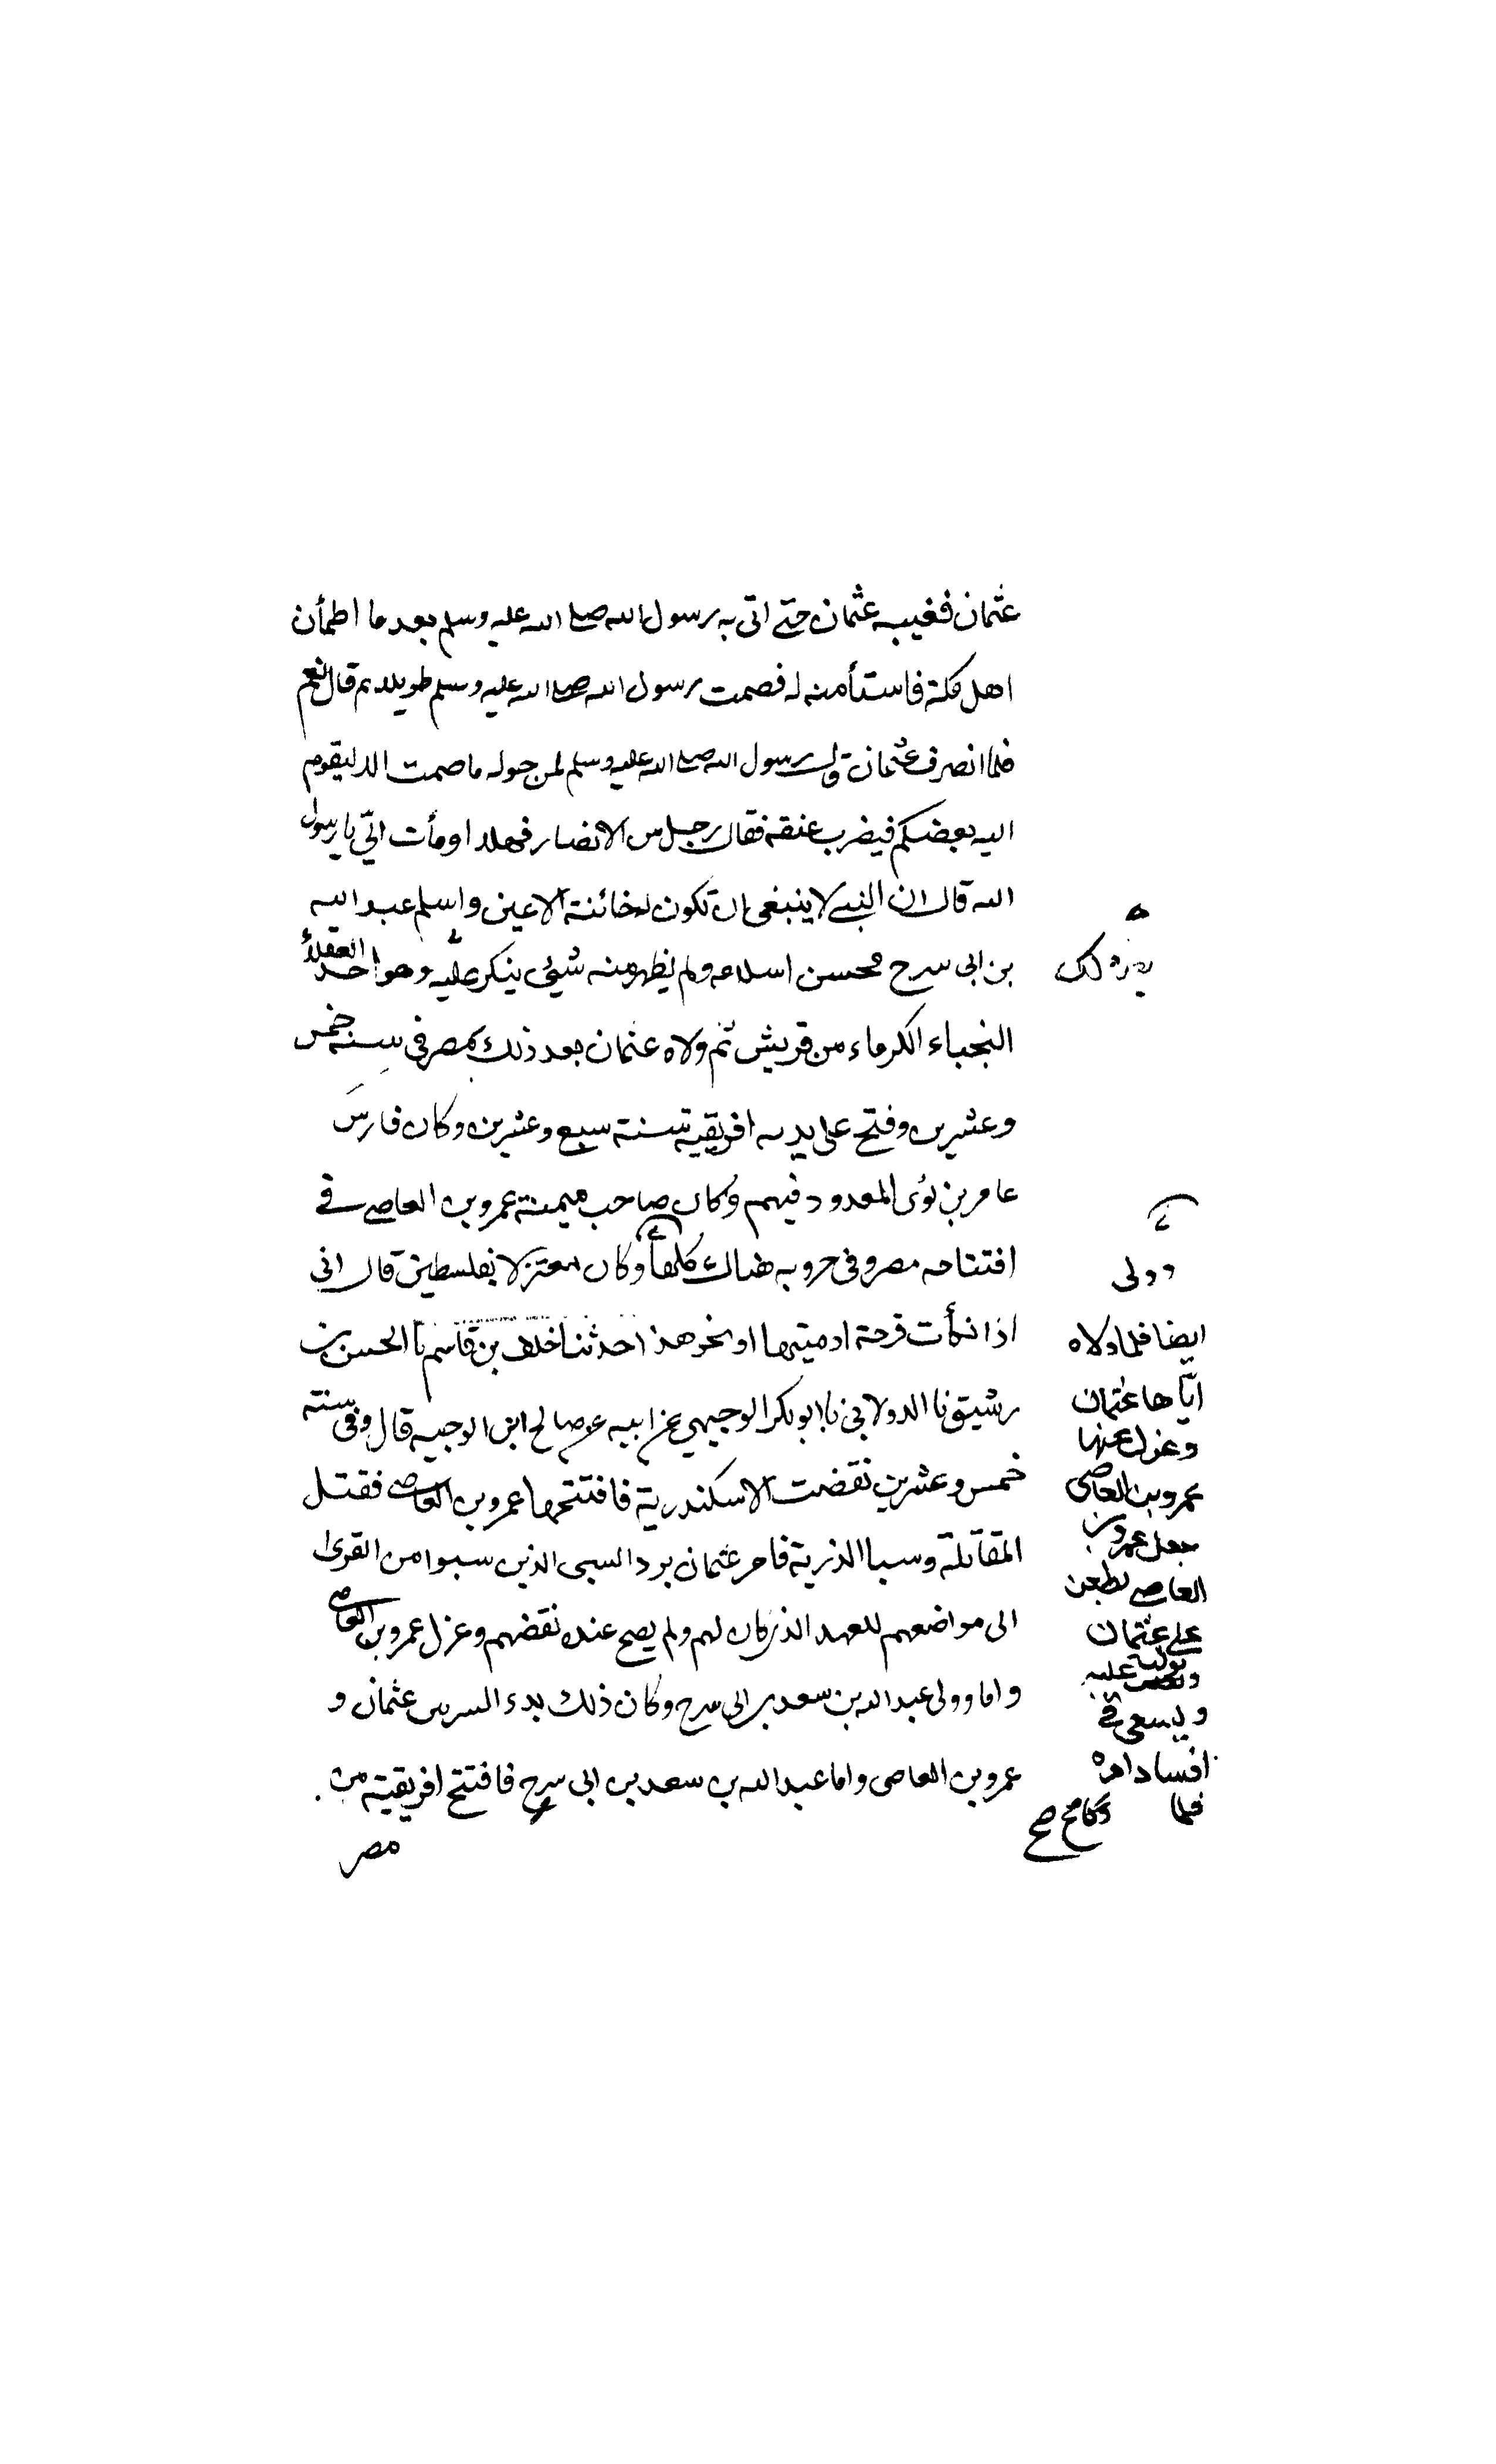 عثمان فغيبه عثمان حتى اتى به رسول الله صلى الله عليه وسلم بعد ما اطمأن
اهل مكة فاستأمنه له فصمت رسول الله صلى الله عليه وسلم طويلا ثم قال نعم
فلما انصرف عثمان قال رسول الله صلى الله عليه وسلم لمن حوله ما صمت الا ليقوم
اليه بعضكم فيضرب عنقه فقال رجل من الانصار فهلا اومأت الي يا رسول
الله قال ان النبي لا ينبغى ان تكون له خائنة الاعين واسلم عبد الله
بن ابى سرح فحسن اسلامه ولم يظهر منه شيئ ينكر عليه وهو احد العقلاء
النجباء الكرماء من قريش ثم ولاه عثمان بعد ذلك بمصر فى سنة خمس
وعشرين وفتح على يديه افريقية سنة سبع وعشرين وكان فارس
عامر بن لؤى المعدود فيهم وكان صاحب ميمنة عمرو بن العاصى فى
افتتاحه مصر وفى حروبه هناك كلها وكان معتزلا بفلسطين قال انى
اذا نكأت قرحة ادميتها او نحو هذا حدثنا خلف بن قاسم نا الحسن بن
رشيق نا الدولابى نا ابو بكر الوجيهي عن ابيه عن صالح ابن الوجيه قال وفى سنة
خمس وعشرين نقضت الاسكندرية فافتتحها عمرو بن العاصى فقتل
المقاتلة وسبا الذرية فامر عثمان برد السبى الذين سبوا من القرى
الى مواضعهم للعهد الذى كان لهم ولم يصح عنده نقضهم وعزل عمرو بن العاصى
و اما وولى عبد الله بن سعد بن ابى سرح وكان ذلك بدء الشر من عثمان و
عمرو بن العاصى واما عبد الله بن سعد بن ابى سرح فافتتح افريقية من
مصر
وولى
ايضا فلما ولاه
ايّاها عثمان
وعزل عنها
عمرو بن العاصى
جعل عمرو بن
العاصى يطعن
على عثمان
عليه
ويسعى فى
افساد امره
فلما
صح